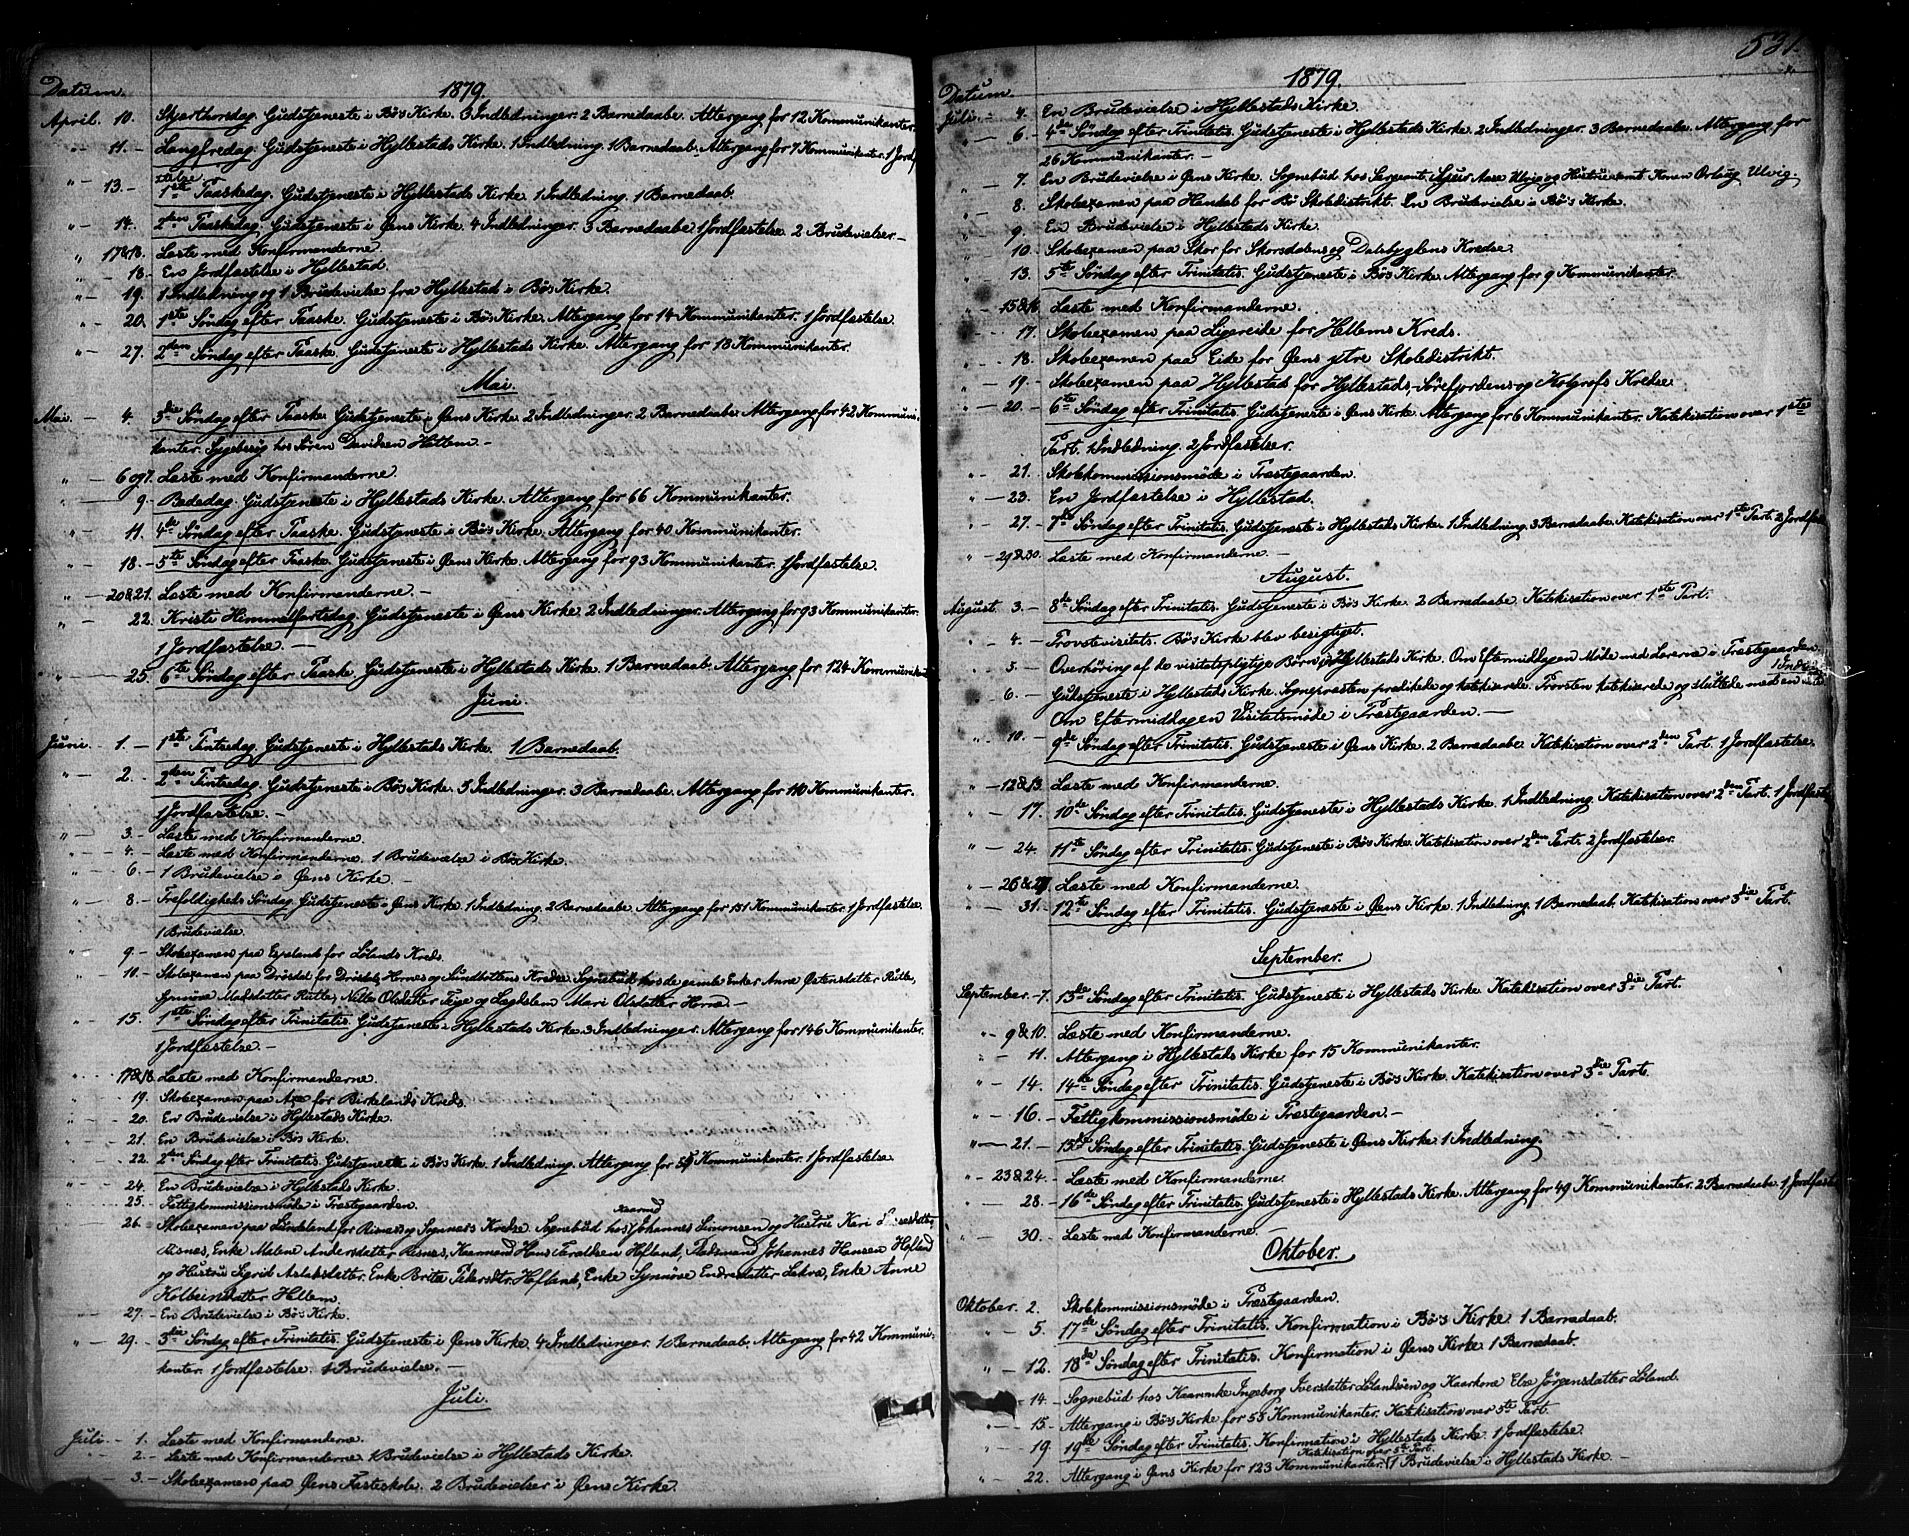 Datum. 1879.
April. 10. Skjærthorsdag. Gudstjeneste i Bö's Kirke. 3 Indledninger. 2 Barnedaabe. Altergang for 12 Kommunikanter.
" - 11. - Langfredag. Gudstjeneste i Hyllestads Kirke. 1 Indledning. 1 Barnedaab. Altergang for 7 Kommunikanter. 1 Jordf-
stelse.
" - 13. - 1ste Paaskedag. Gudstjeneste i Hyllestads Kirke. 1 Indledning. 1 Barnedaab.
" - 14. 2den Paaskedag. Gudstjeneste i Øens Kirke. 4 Indledninger. 3 Barnedaabe. 1 Jordfæstelse. 2 Brudevielser -
" 17 & 18. Læste med Konfirmanderne.
" - 18. - En Jordfæstelse i Hyllestad.
" - 19. 1 Indledning og 1 Brudevielse fra Hyllestad i Bö's Kirke.
" - 20. 1ste Söndag efter Paaske. Gudstjeneste i Bö's Kirke. Altergang for 14 Kommunikanter. 1 Jordfæstelse.
" - 27. 2den Söndag efter Paaske. Gudstjeneste i Hyllestads Kirke. Altergang for 18 Kommunikanter.
Mai.
Mai - 4. 3die Söndag efter Paaske. Gudstjeneste i Øens Kirke. 2 Indledninger. 2 Barnedaabe. Altergang for 42 Kommuni-
kanter. Sygebesög hos Sören Davidsen Hatlem -
" - 6 og 7. Læste med Konfirmanderne.
" - 9. - Bededag. Gudstjeneste i Hyllestads Kirke. Altergang for 66 Kommunikanter.
" - 11. 4de Söndag efter Paaske. Gudstjeneste i Bö's Kirke. Altergang for 40 Kommunikanter.
" - 18. - 5te Söndag efter Paaske. Gudstjeneste i Øens Kirke. Altergang for 93 Kommunikanter. 1 Jordfæstelse.
" - 20 & 21. Læste med Konfirmanderne. -
" - 22. Kristi Himmelfartsdag. Gudstjeneste i Øens Kirke. 2 Indledninger. Altergang for 93 Kommunikanter.
1 Jordfæstelse. -
" - 25. 6te Söndag efter Paaske. Gudstjeneste i Hyllestads Kirke. 1 Barnedaab. Altergang for 124 Kommunik
Juni.
Juni - 1. - 1ste Pintsedag. Gudstjeneste i Hyllestads Kirke. 1 Barnedaab.
" - 2. 2den Pintsedag. Gudstjeneste i Bö's Kirke. 5 Indledninger. 3 Barnedaabe. Altergang for 140 Kommunikanter.
1 Jordfæstelse. -
" - 3. - Læste med Konfirmanderne.
- 4. - Læste med Konfirmanderne. 1 Brudevielse i Bö's Kirke.
" - 6. - 1 Brudevielse i Øens Kirke. -
" - 8. Trefoldigheds Söndag. Gudstjeneste i Øens Kirke. 1 Indledning. 2 Barnedaabe. Altergang for 151 Kommunikanter. 1 Jordfæstelse.
1 Brudevielse.
" - 9. - Skoleexamen paa Espeland for Lölands Kreds.
" - 10. - Skoleexamen paa Drösdal for Drösdals, Hornes og Sundbottens Kredse. Sognebud hos de gamle Enker Anne Østensdatter Rutle,
Gunnöve Madsdatter Rutle, Nille Olsdatter Teige og Lægdslem Mari Olsdatter Horne -
" - 15. 1ste Söndag efter Trinitatis. Gudstjeneste i Hyllestads Kirke. 3 Indledninger. Altergang for 146 Kommunikanter.
1 Jordfæstelse. -
" - 17 & 18. Læste med Konfirmanderne.
- 19. Skoleexamen paa Axe for Birkelands Kreds.
- 20. En Brudevielse i Hyllestads Kirke.
- 21. En Brudevielse i Bös Kirke.
- 22. 2den Söndag efter Trinitatis. Gudstjeneste i Bö's Kirke. 1 Indledning. Altergang for 54 Kommunikanter. 1 Jordfæstelse.
- 24. En Brudevielse i Hyllestads Kirke.
- 25. Fattigkommissionsmöde i Præstegaarden.
- 26. Skoleexamen paa Lindeland for Risnes og Sognnes Kredse. Sognebud hos Kaarmd Johannes Simonsen og Hustru Kari Larsdatter
Risnes, Enke Malene Andersdatter Risnes, Kaarmand Hans Haraldsen Hofland, Pladsmand Johannes Hansen Hofland
og Hustru Sigrid Aslaksdatter, Enke Brita Pedersdtr. Hofland, Enke Synnöve Endresdatter Lekva, Enke Anne
Kolbeinsdatter Hellem.
- 27. - En Brudevielse i Bö's Kirke.
" - 29. - 3die Söndag efter Trinitatis. Gudstjeneste i Øens Kirke. 4 Indledninger. 1 Barnedaab. Altergang for 42 Kommuni-
kanter. 1 Jordfæstelse. 1 Brudevielse. -
Juli.
Juli. - 1. Læste med Konfirmanderne.
- 2. - Læste med Konfirmanderne. 1 Brudevielse i Hyllestads Kirke.
- 3. - Skoleexamen paa Øens Fasteskole. 2 Brudevielser i Øens Kirke.
531.
Datum. 1879.
Juli. - 4. En Brudevielse i Hyllestads Kirke.
" - 6. - 4de Söndag efter Trinitatis. Gudstjeneste i Hyllestads Kirke. 2 Indledninger. 3 Barnedaabe. Altergang for
26 Kommunikanter. -
" - 7. En Brudevielse i Øens Kirke. Sognebud hos Sergeant Sjur Aase Ulvig og Hustru samt Konen Ulvig.
" - 8. Skoleexamen paa Handal for Bö Skoledistrikt. En Brudevielse i Bö's Kirke.
- 9. En Brudevielse i Hyllestads Kirke.
" - 10. Skoleexamen paa Skor for Skorsdalens og Dalsbygdens Kredse.
" - 13. 5te Söndag efter Trinitatis. Gudstjeneste i Bö's Kirke. Altergang for 9 Kommunikanter.
" - 15 & 16. Læste med Konfirmanderne.
" - 17. Skoleexamen paa Ligereide for Hellems Kreds.
- 18. Skoleexamen paa Eike for Øens ytre Skoledistrikt.
" - 19. - Skoleexamen paa Hyllestad for Hyllestads-, Sörefjordens og Holgrofs Kredse.
" - 20. - 6te Söndag efter Trinitatis. Gudstjeneste i Øens Kirke. Altergang for 6 Kommunikanter. Katekisation over 1ste
Part. 1 Indledning. 2 Jordfæstelser.
" - 21. Skolekommissionsmöde i Præstegaarden.
" - 23. En Jordfæstelse i Hyllestad.
" - 27. 7de Söndag efter Trinitatis. Gudstjeneste i Hyllestads Kirke. 1 Indledning. 3 Barnedaabe. Katekisation over 1ste Part. 2 Jordfæst
" - 29 & 30. Læste med Konfirmanderne. -
August.
August. 3. - 8de Söndag efter Trinitatis. Gudstjeneste i Bö's Kirke. 2 Barnedaabe. Katekisation over 1ste Part.
" - 4. - Provstevisitats. Bö's Kirke blev besigtiget.
" - 5. - Overhöring af de visitatspligtige Börn i Hyllestads Kirke. Om Eftermiddagen Möde med Lærerne i Præstegaarden.
" - 6. - Gudstjeneste i Hyllestads Kirke. Sognepræsten prædikede og katekiserede. Provsten katekiserede og sluttede med en
Om Eftermiddagen Visitatsmöde i Præstegaarden. -
" - 10. - 9de Söndag efter Trinitatis. Gudstjeneste i Øens Kirke. 2 Barnedaabe. Katekisation over 2den Part. 1 Jordfæstelse.
" - 12 & 13. Læste med Konfirmanderne.
" - 17. 10de Söndag efter Trinitatis. Gudstjeneste i Hyllestads Kirke. 1 Indledning. Katekisation over 2den Part. 1 Jordfæste
" - 24. 11te Söndag efter Trinitatis. Gudstjeneste i Bö's Kirke. Katekisation over 2den Part. 2 Jordfæstelser.
" - 26 & 27. Læste med Konfirmanderne.
" - 31. - 12te Söndag efter Trinitatis. Gudstjeneste i Øens Kirke. 1 Indledning. 1 Barnedaab. Katekisation over 3die Part.
September.
September. - 7. 13de Söndag efter Trinitatis. Gudstjeneste i Hyllestads Kirke. Katekisation over 3die Part.
" - 9 & 10. Læste med Konfirmanderne.
" - 11. Altergang i Hyllestads Kirke for 15 Kommunikanter.
" - 14. 14de Söndag efter Trinitatis. Gudstjeneste i Bö's Kirke. Katekisation over 3die Part.
" - 16. - Fattigkommissionsmöde i Præstegaarden. -
" - 21. - 15de Söndag efter Trinitatis. Gudstjeneste i Øens Kirke. 1 Indledning.
" - 23 & 24. - Læste med Konfirmanderne.
28. - 16te Söndag efter Trinitatis. Gudstjeneste i Hyllestads Kirke. Altergang for 49 Kommunikanter. 2 Barnedaabe. 1 Jordfæst
" - 30. Læste med Konfirmanderne.
Oktober.
Oktober. 2. Skolekommissionsmöde i Præstegaarden.
" - 5. 17de Söndag efter Trinitatis. Konfirmation i Bö's Kirke. 1 Barnedaab.
" - 12. 18de Söndag efter Trinitatis. Konfirmation i Øens Kirke. 1 Barnedaab.
" - 14. Sognebud hos Kaarenke Ingeborg Iversdatter Lölandsöen og Kaarkone Else Jörgensdatter Löland.
" - 15. Altergang i Bö's Kirke for 55 Kommunikanter. Katekisation over 5te Part.
" - 19 19de Söndag efter Trinitatis. Konfirmation i Hyllestads Kirke. 1 Jordfæstelse.
Katekisation over 5te Part.
" - 22. Altergang i Øens Kirke for 123 Kommunikanter. 1 Brudevielse i Hyllestads Kirke. -